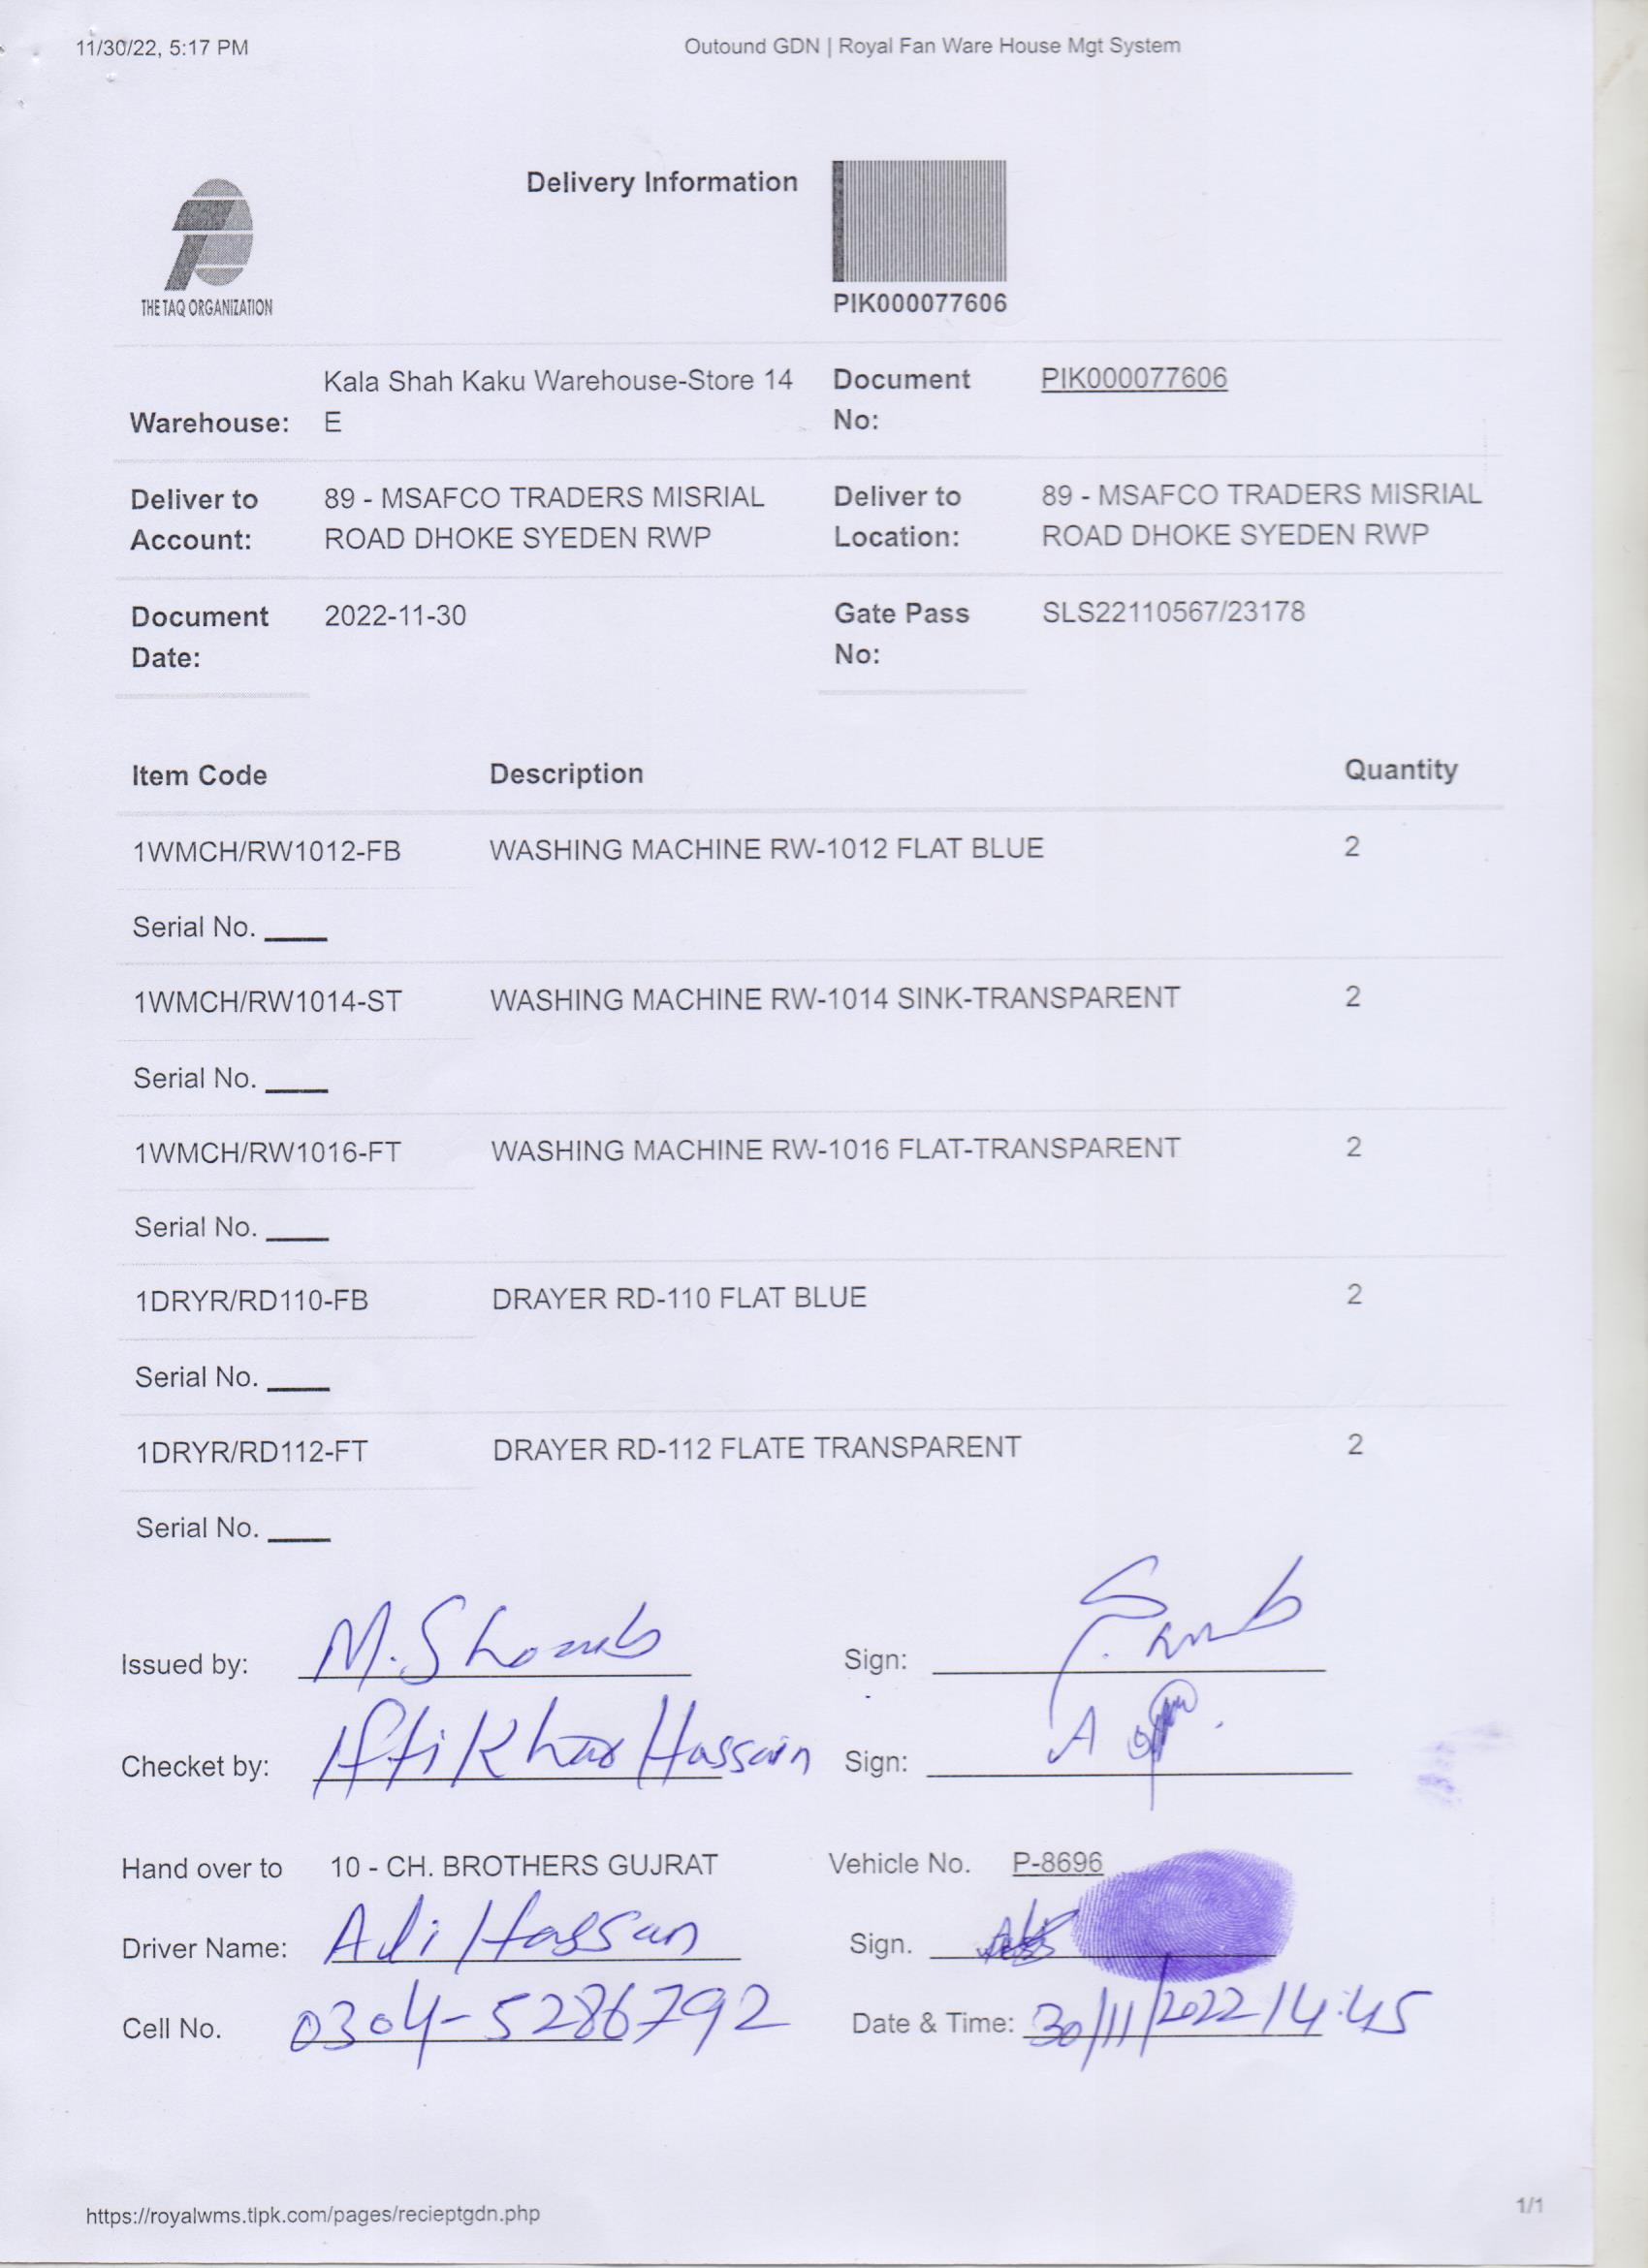 11/30/22, 5:17 PM
Outound GDN | Royal Fan Ware House Mgt System
THE TAQ ORGANIZATION
Delivery Information
PIK000077606
Warehouse: Kala Shah Kaku Warehouse-Store 14 E
Document No: PIK000077606
Deliver to Account: 89 - MSAFCO TRADERS MISRIAL ROAD DHOKE SYEDEN RWP
Deliver to Location: 89 - MSAFCO TRADERS MISRIAL ROAD DHOKE SYEDEN RWP
Document Date: 2022-11-30
Gate Pass No: SLS22110567/23178
Item Code Description Quantity
1WMCH/RW1012-FB WASHING MACHINE RW-1012 FLAT BLUE 2
Serial No. ____
1WMCH/RW1014-ST WASHING MACHINE RW-1014 SINK-TRANSPARENT 2
Serial No. ____
1WMCH/RW1016-FT WASHING MACHINE RW-1016 FLAT-TRANSPARENT 2
Serial No. ____
1DRYR/RD110-FB DRAYER RD-110 FLAT BLUE 2
Serial No. ____
1DRYR/RD112-FT DRAYER RD-112 FLATE TRANSPARENT 2
Serial No. ____
Issued by: M. Sign:
Checket by: Iftikhar Hassain Sign:
Hand over to 10 - CH. BROTHERS GUJRAT Vehicle No. P-8696
Driver Name: Ali Hassan Sign.
Cell No. 0304-5286792 Date & Time: 30/11/2022 14:45
https://royalwms.tlpk.com/pages/recieptgdn.php
1/1